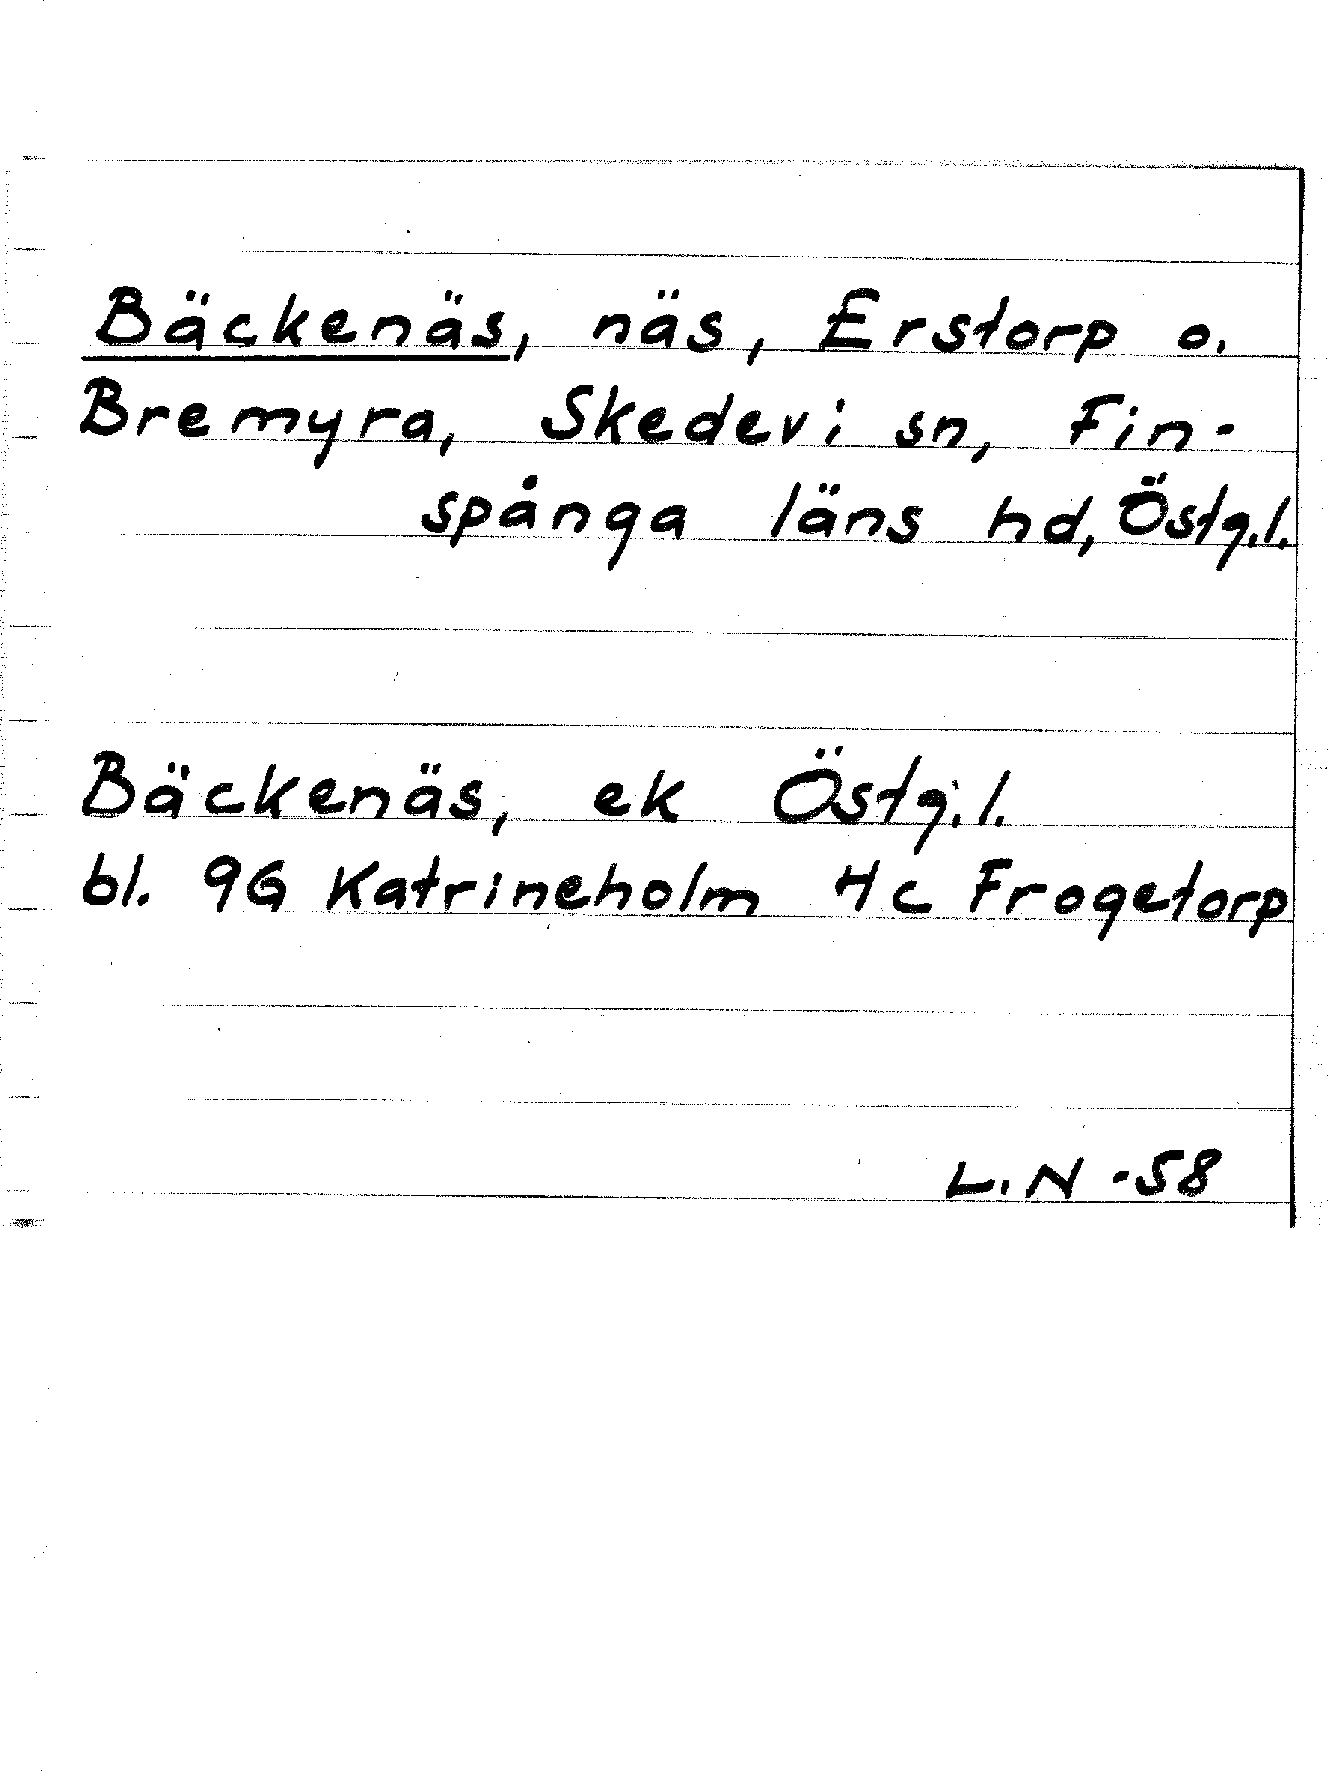 Bäckenäs, näs, Erstorp o.
Bremyra, Skedevi sn, Fin-
spånga läns hd, Östg.l.
Bäckenäs, ek Östg.l.
bl. 9G Katrineholm 4c Frogetorp
L.N -58